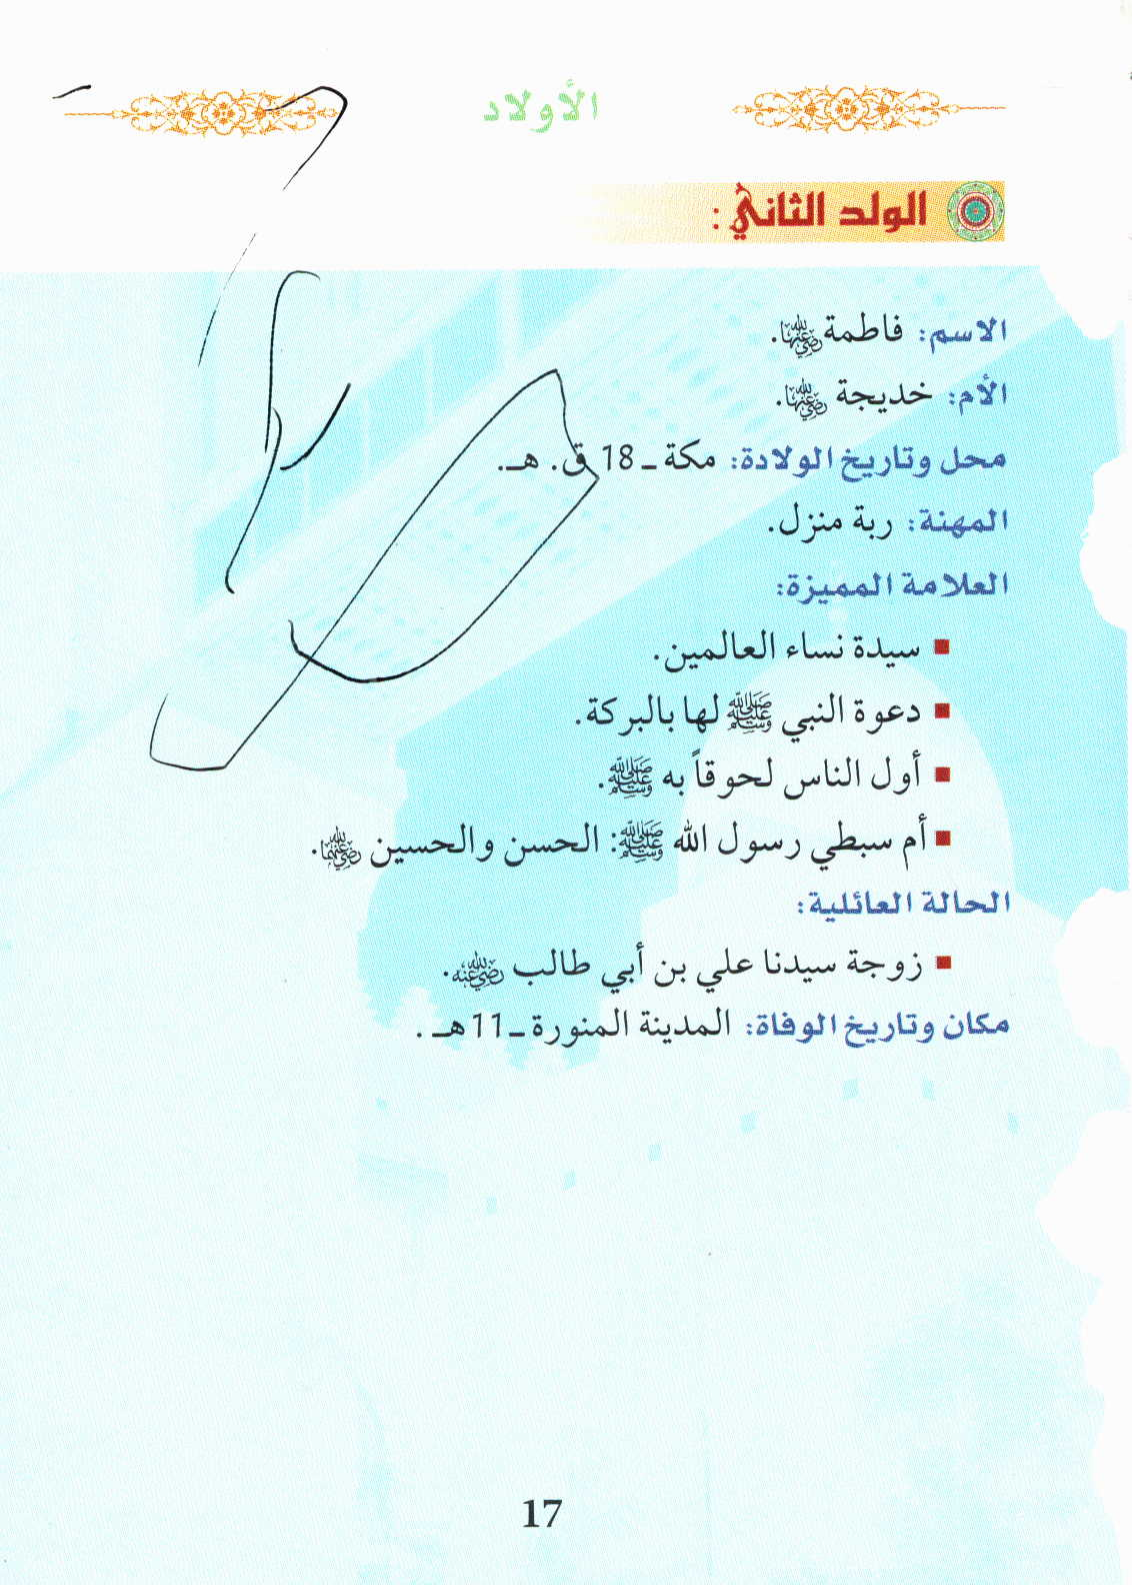 الأولاد
الولد الثاني:
الاسم: فاطمة رضي الله عنها.
الأم: خديجة رضي الله عنها.
محل وتاريخ الولادة: مكة ـ 18 ق. هـ.
المهنة: ربة منزل.
العلامة المميزة:
▪ سيدة نساء العالمين.
▪ دعوة النبي ﷺ لها بالبركة.
▪ أول الناس لحوقاً به ﷺ.
▪ أم سبطي رسول الله ﷺ: الحسن والحسين رضي الله عنهما.
الحالة العائلية:
▪ زوجة سيدنا علي بن أبي طالب رضي الله عنه.
مكان وتاريخ الوفاة: المدينة المنورة ـ 11هـ .
17